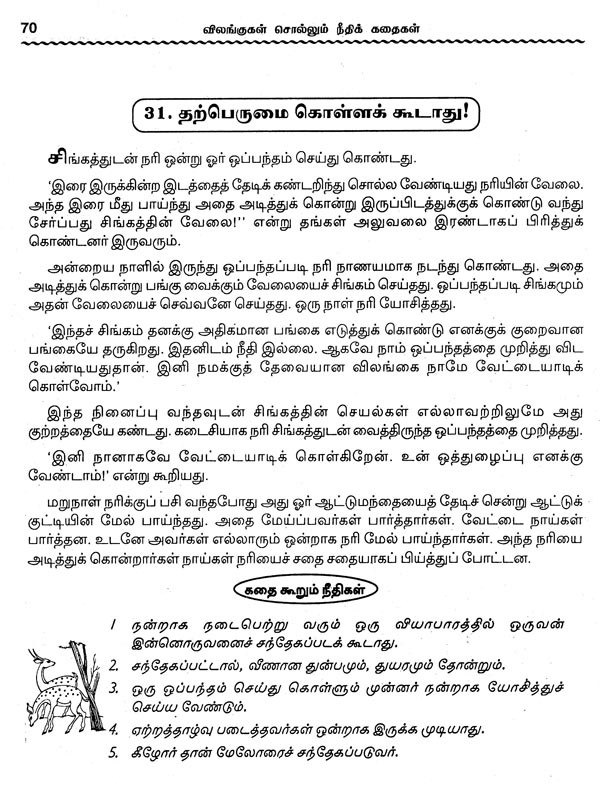 70
விலங்குகள் சொல்லும் நீதிக் கதைகள்
31. தற்பெருமை கொள்ளக் கூடாது!
சிங்கத்துடன் நரி ஒன்று ஓர் ஒப்பந்தம் செய்து கொண்டது.
'இரை இருக்கின்ற இடத்தைத் தேடிக் கண்டறிந்து சொல்ல வேண்டியது நரியின் வேலை.
அந்த இரை மீது பாய்ந்து அதை அடித்துக் கொன்று இருப்பிடத்துக்குக் கொண்டு வந்து
சேர்ப்பது சிங்கத்தின் வேலை!'' என்று தங்கள் அலுவலை இரண்டாகப் பிரித்துக்
கொண்டனர் இருவரும்.
அன்றைய நாளில் இருந்து ஒப்பந்தப்படி நரி நாணயமாக நடந்து கொண்டது. அதை
அடித்துக் கொன்று பங்கு வைக்கும் வேலையைச் சிங்கம் செய்தது. ஒப்பந்தப்படி சிங்கமும்
அதன் வேலையைச் செவ்வனே செய்தது. ஒரு நாள் நரி யோசித்தது.
'இந்தச் சிங்கம் தனக்கு அதிகமான பங்கை எடுத்துக் கொண்டு எனக்குக் குறைவான
பங்கையே தருகிறது. இதனிடம் நீதி இல்லை. ஆகவே நாம் ஒப்பந்தத்தை முறித்து விட
வேண்டியதுதான். இனி நமக்குத் தேவையான விலங்கை நாமே வேட்டையாடிக்
கொள்வோம்.'
இந்த நினைப்பு வந்தவுடன் சிங்கத்தின் செயல்கள் எல்லாவற்றிலுமே அது
குற்றத்தையே கண்டது. கடைசியாக நரி சிங்கத்துடன் வைத்திருந்த ஒப்பந்தத்தை முறித்தது.
'இனி நானாகவே வேட்டையாடிக் கொள்கிறேன். உன் ஒத்துழைப்பு எனக்கு
வேண்டாம்!' என்று கூறியது.
மறுநாள் நரிக்குப் பசி வந்தபோது அது ஓர் ஆட்டுமந்தையைத் தேடிச் சென்று ஆட்டுக்
குட்டியின் மேல் பாய்ந்தது. அதை மேய்ப்பவர்கள் பார்த்தார்கள். வேட்டை நாய்கள்
பார்த்தன. உடனே அவர்கள் எல்லாரும் ஒன்றாக நரி மேல் பாய்ந்தார்கள். அந்த நரியை
அடித்துக் கொன்றார்கள் நாய்கள் நரியைச் சதை சதையாகப் பிய்த்துப் போட்டன.
கதை கூறும் நீதிகள்
1 நன்றாக நடைபெற்று வரும் ஒரு வியாபாரத்தில் ஒருவன்
இன்னொருவனைச் சந்தேகப்படக் கூடாது.
2. சந்தேகப்பட்டால், வீணான துன்பமும், துயரமும் தோன்றும்.
3. ஒரு ஒப்பந்தம் செய்து கொள்ளும் முன்னர் நன்றாக யோசித்துச்
செய்ய வேண்டும்.
4. ஏற்றத்தாழ்வு படைத்தவர்கள் ஒன்றாக இருக்க முடியாது.
5. கீழோர் தான் மேலோரைச் சந்தேகப்படுவர்.